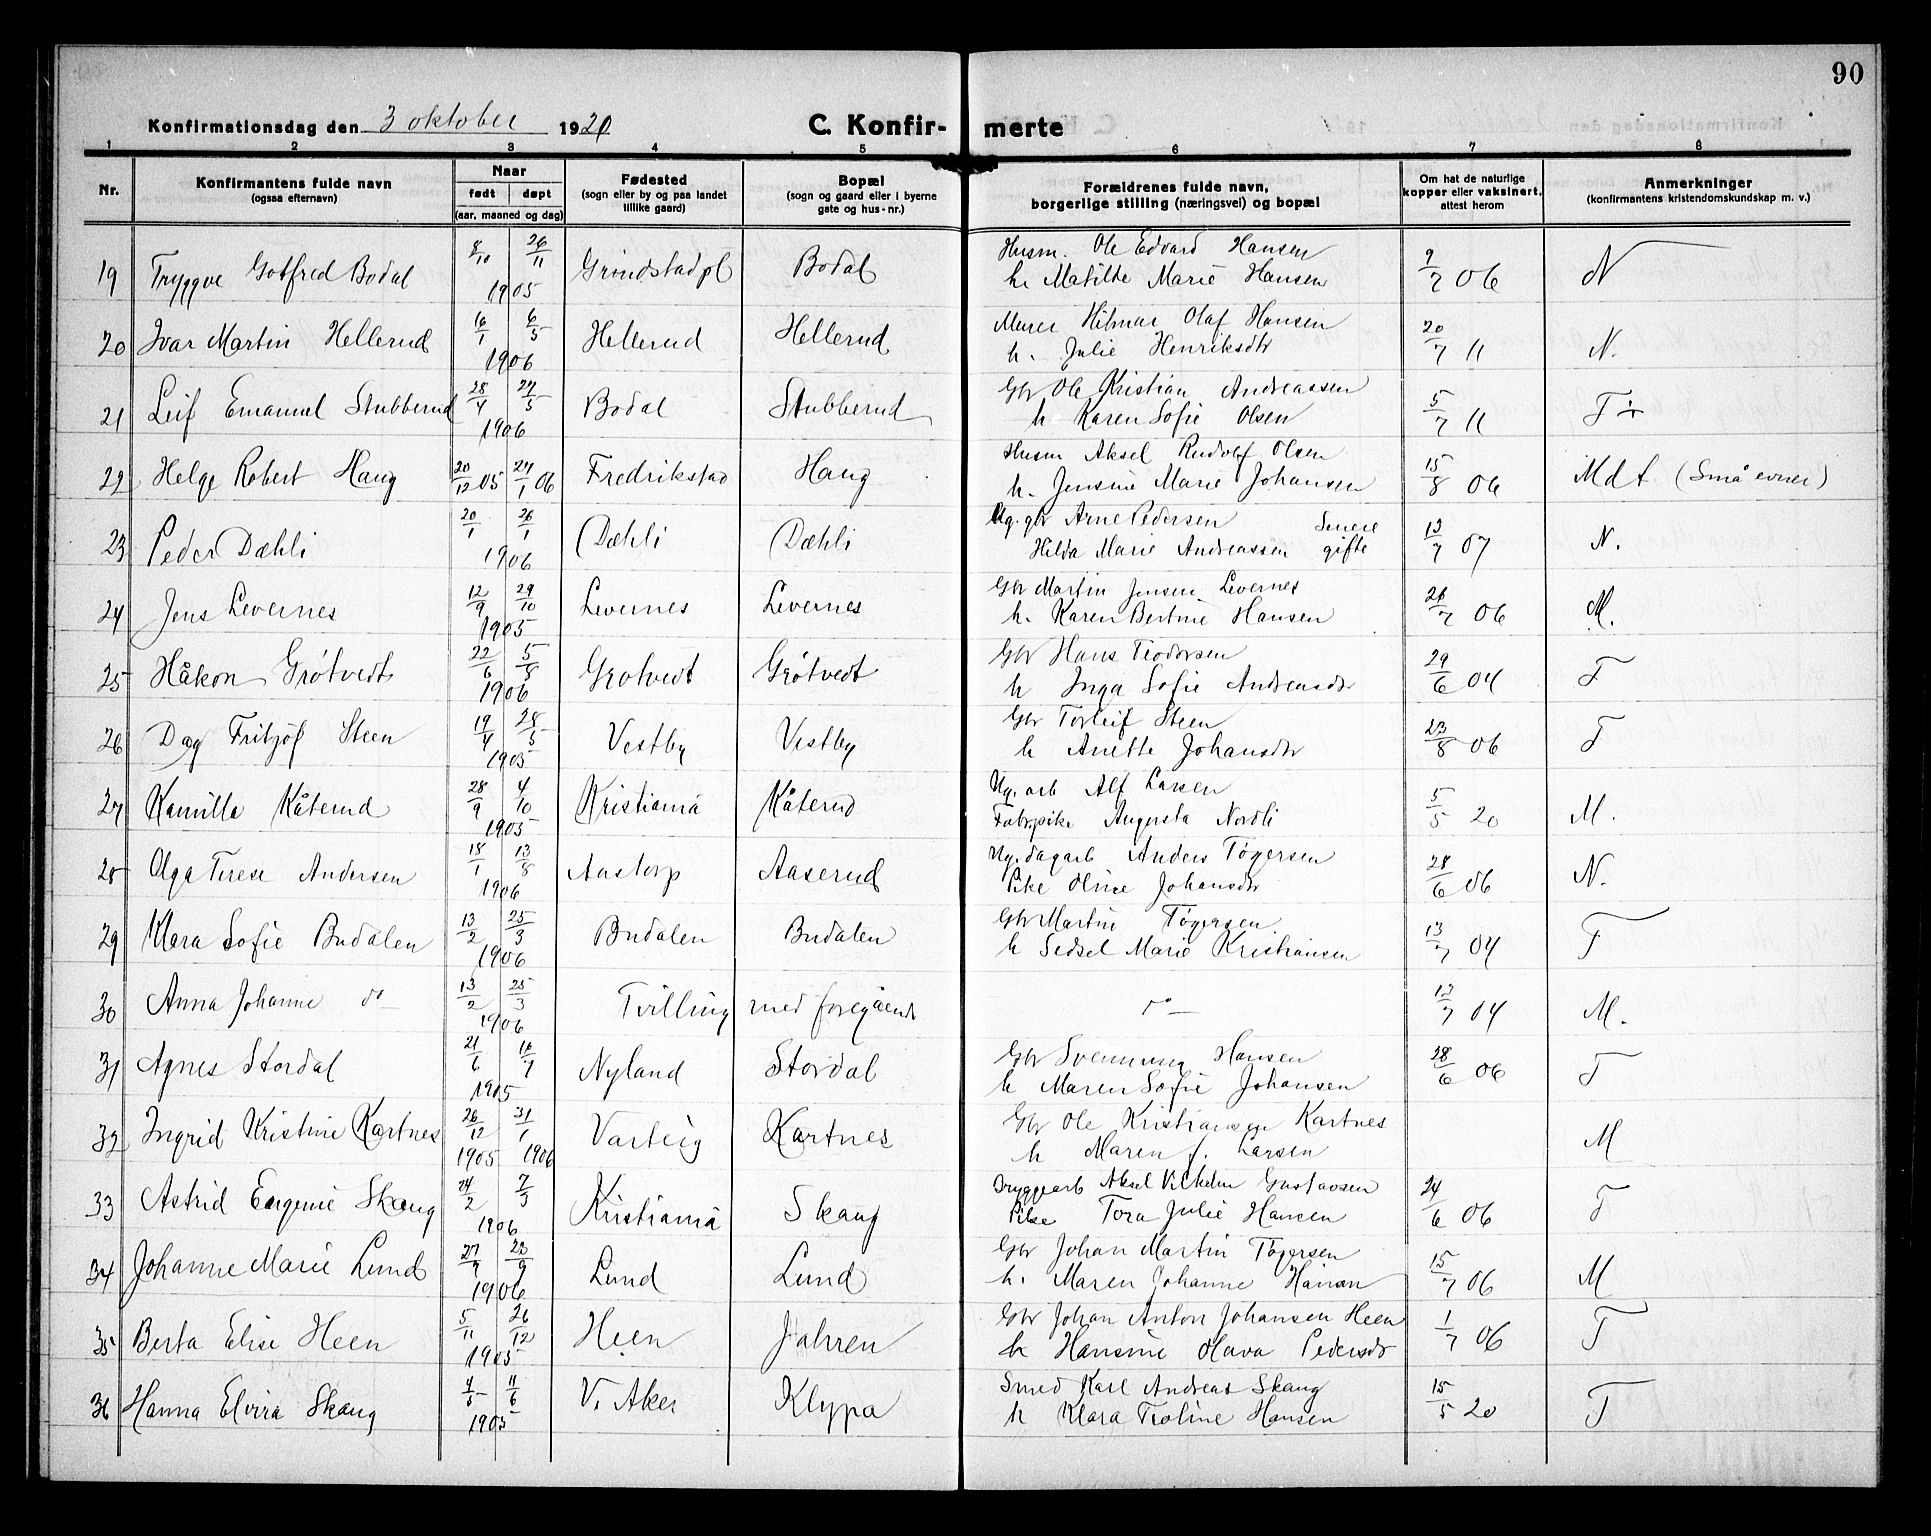 90
Konfirmationsdag den 3 oktober 1920 C. Konfirmerte
1 2 3 4 5 6 7 8
Nr. Konfirmantens fulde navn (ogsaa efternavn) Naar født døpt (aar, maaned og dag) Fødested (sogn eller by og paa landet tillike gaard) Bopæl (sogn og gaard eller i byerne gate og hus-nr.) Forældrenes fulde navn, borgerlige stilling (næringsvei) og bopæl Om hat de naturlige kopper eller vaksinert, attest herom Anmerkninger (konfirmantens kristendomskundskap m. v.)
19 Tryggve Gotfred Bodal 8/10 26/11 1905 Grindstadpl Bodal Husm. Ole Edvard Hansen
h. Matilde Marie Hansen 9/7 06 N
20 Ivar Martin Hellerud 16/1 6/5 1906 Hellerud Hellerud Murer Hilmar Olaf Hansen
h. Julie Henriksdtr 20/7 11 N.
21 Leif Emanuel Stubberud 28/4 27/5 1906 Bodal Stubberud Gbr Ole Kristian Andreassen
h Karen Sofie Olsen 5/7 11 T÷
22 Helge Robert Haug 20/12 05 27/1 06 Fredrikstad Haug Husm Aksel Rudolf Olsen
h. Jensine Marie Johansen 15/8 06 Mdt (Små evner)
23 Peder Dæhli 20/1 26/1 1906 Dæhli Dæhli Ug. gbr Arne Pedersen Senere
Hilda Marie Andreassen gifte 13/7 07 N.
24 Jens Levernes 12/9 29/10 1905 Levernes Levernes Gbr Martin Jensen Levernes
h. Karen Bertine Hansen 26/7 06 M.
25 Håkon Grötvedt 22/6 5/8 1906 Grotvedt Grötvedt Gbr Hans Teodorsen
h Inga Sofie Andreasdtr 29/6 04 T
26 Dag Fritjof Steen 19/4 28/5 1905 Vestby Vestby Gbr Torleif Steen
h Anette Johansdtr 23/8 06 T
27 Kamilla Kåterud 28/9 4/10 1905 Kristiania Kåterud Ug. arb Alf Larsen
Fabrpike Augusta Nordli 5/5 20 M.
28 Olga Terese Andersen 18/1 13/8 1906 Aastorp Aaserud Ug. dagarb Anders Tøgersen
Pike Oline Johansdtr 28/6 06 N.
29 Klara Sofie Budalen 13/2 25/3 1906 Budalen Budalen Gbr Martin Tøgersen
h Sedsel Marie Kristiansen 13/7 04 T
30 Anna Johanne do 13/2 25/3 1906 Tvilling med foregående do 13/7 04 M.
31 Agnes Stordal 21/6 16/7 1905 Nyland Stordal Gbr Svennung Hansen
h Maren Sofie Johansen 28/6 06 T
32 Ingrid Kristine Kartnes 26/12 1905 31/1 1906 Varteig Kartnes Gbr Ole Kristiansen Kartnes
h Maren J. Larsen M
33 Astrid Eugenie Skaug 24/2 7/3 1906 Kristiania Skaug Bryggearb Aksel Vilhelm Gustavsen
Pike Tora Julie Hansen 24/6 06 T
34 Johanne Marie Lund 27/7 23/9 1906 Lund Lund Gbr Johan Martin Tøgersen
h. Maren Johanne Hansen 15/7 06 M
35 Berta Elise Heen 5/11 26/12 1905 Heen Jahren Gbr Johan Anton Johansen Heen
h Hansine Olava Pedersdtr 1/7 06 T
36 Hanna Elvira Skaug 4/5 11/6 1905 V. Aker Klypa Smed Karl Andreas Skaug
h Klara Teoline Hansen 15/5 20 T